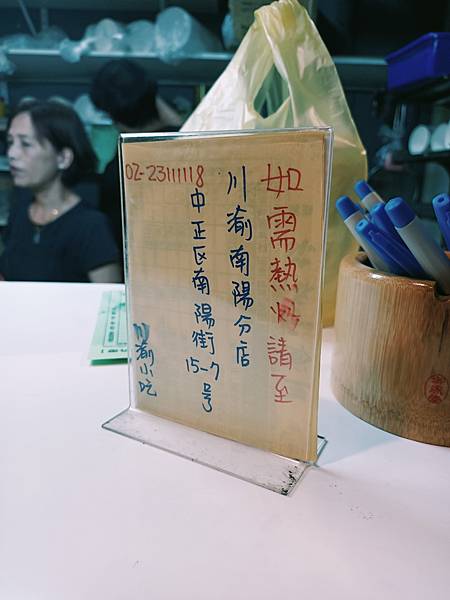 如需熱炒請至
川渝南陽分店
中正区南陽街15-7号
02-23111118
川渝小吃